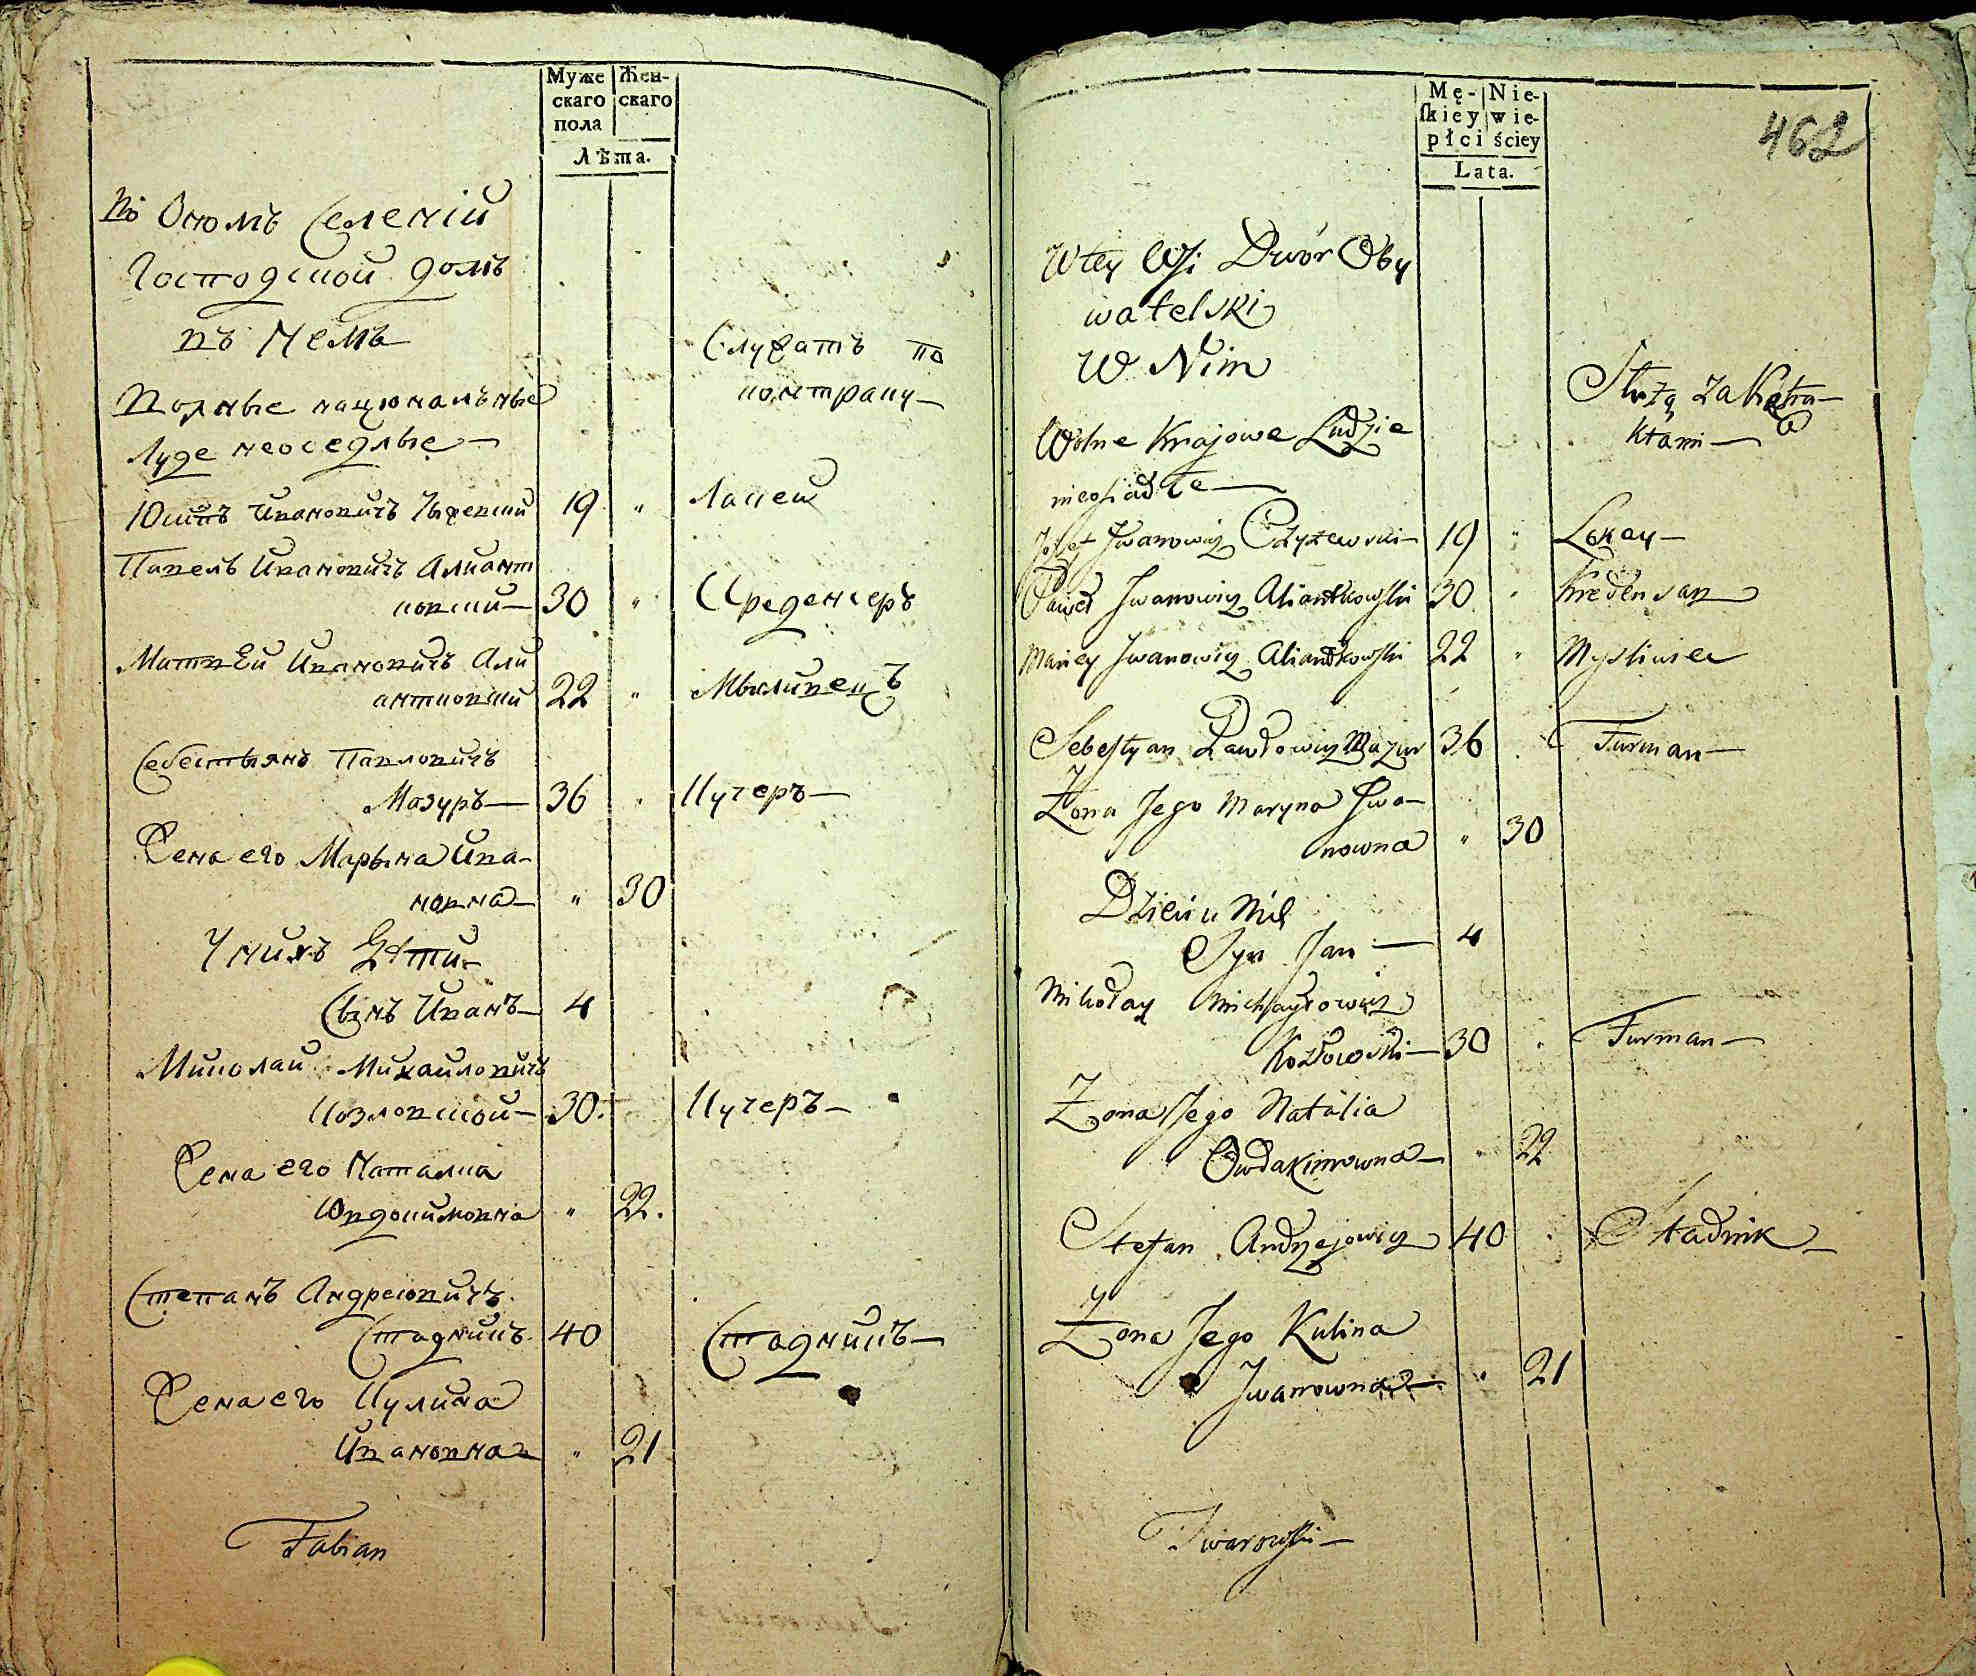 Муже
скаго
пола
Жен-
скаго
Лѣта.
во Ономъ Селеніи
Господской домъ
въ Немъ
Служатъ по
контраку
Волные нацыональные
Люде неоседлые
Юзипъ Ивановичъ Чыжевский 19 " Лакей
Павелъ Ивановичъ Алиант
ковский 30 " Креденсеръ
Матвѣй Ивановичъ Али
антковский 22 " Мысливецъ
Себестьянъ Павловичъ
Мазуръ 36 " Кучеръ
Жена его Марына Ива-
новна " 30
У нихъ Дѣти
Сынъ Иванъ 4
Миколай Михайловичъ
Козловской 30. Кучеръ
Жена его Наталиа
Овдокимовна " 22.
Степанъ Андреювичъ
Стадникъ 40 Стадникъ
Жена его Кулина
Ивановна " 21
Fabian
Mę-
skiey
płci
Nie-
wie-
ściey
Lata.
462
W tey Wsi Dwór Oby
watelski
W Nim
Służą za Kątra-
ktami
Wolne Krajowe Ludzie
nieosiadłe
Jozef Jwanowicz Czyżewski 19 " Lokay
Paweł Jwanowicz Aliantkowski 30 " Kredensarz
Maciey Jwanowicz Aliantkowski 22 " Mysliwiec
Sebestyan Pawłowicz Mazur 36 " Furman
Żona Jego Maryna Jwa-
nowna " 30
Dzieci u Nich
Syn Jan 4
Mikołay Michayłowicz
Kozłowski 30 " Furman
Żona Jego Natalia
Owdakimowna " 22
Stefan Andrzejowicz 40 " Stadnik
Żona Jego Kulina
Jwanowna " 21
Twarowski